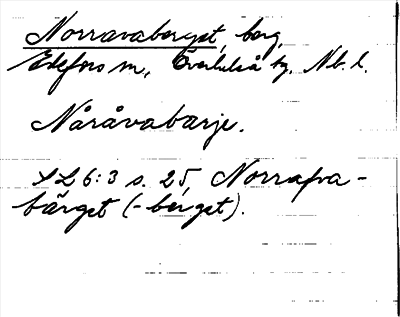 Norravaberget, berg,
Edefors sn, Överluleå tg. Nb. l.
Nåråvabärje.
SL 6:3 s. 25, Norrafva-
bärget (-berget).